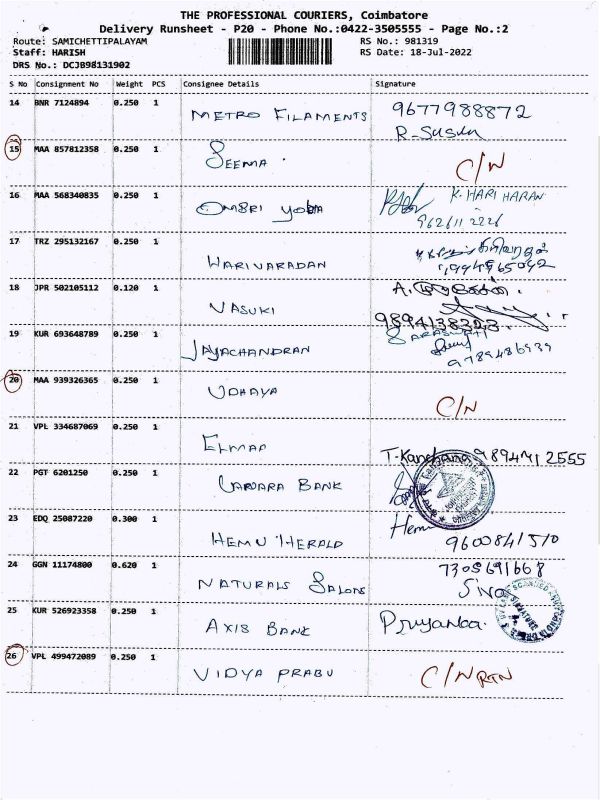 THE PROFESSIONAL COURIERS, Coimbatore
Delivery Runsheet - P20 - Phone No.:0422-3505555 - Page No.:2
Route: SAMICHETTIPALAYAM RS No.: 981319
Staff: HARISH RS Date: 18-Jul-2022
DRS No.: DCJB98131902
S No Consignment No Weight PCS Consignee Details Signature
14 BNR 7124894 0.250 1
METRO FILAMENTS 9677988872
R-Susila
15 MAA 857812358 0.250 1
SEEMA C/N
16 MAA 568340835 0.250 1
K. HARI HARAN
OMSRI YOGA
17 TRZ 295132167 0.250 1
HARIVARADAN
18 JPR 502105112 0.120 1
VASUKI
9894138323
19 KUR 693648789 0.250 1 SARASWATHI
JAYACHANDRAN
9789486939
20 MAA 939326365 0.250 1
UDHAYA C/N
21 VPL 334687069 0.250 1
ELMAP T-Kanchana
22 PGT 6201250 0.250 1
CANARA BANK
23 EDQ 25087220 0.300 1 Hemu
HEMU HERALD 9600841510
24 GGN 11174800 0.620 1 7305691668
NATURALS SALONS Siva
25 KUR 526923358 0.250 1
AXIS BANK Priyanka
26 VPL 499472089 0.250 1
VIDYA PRABU C/N RTN